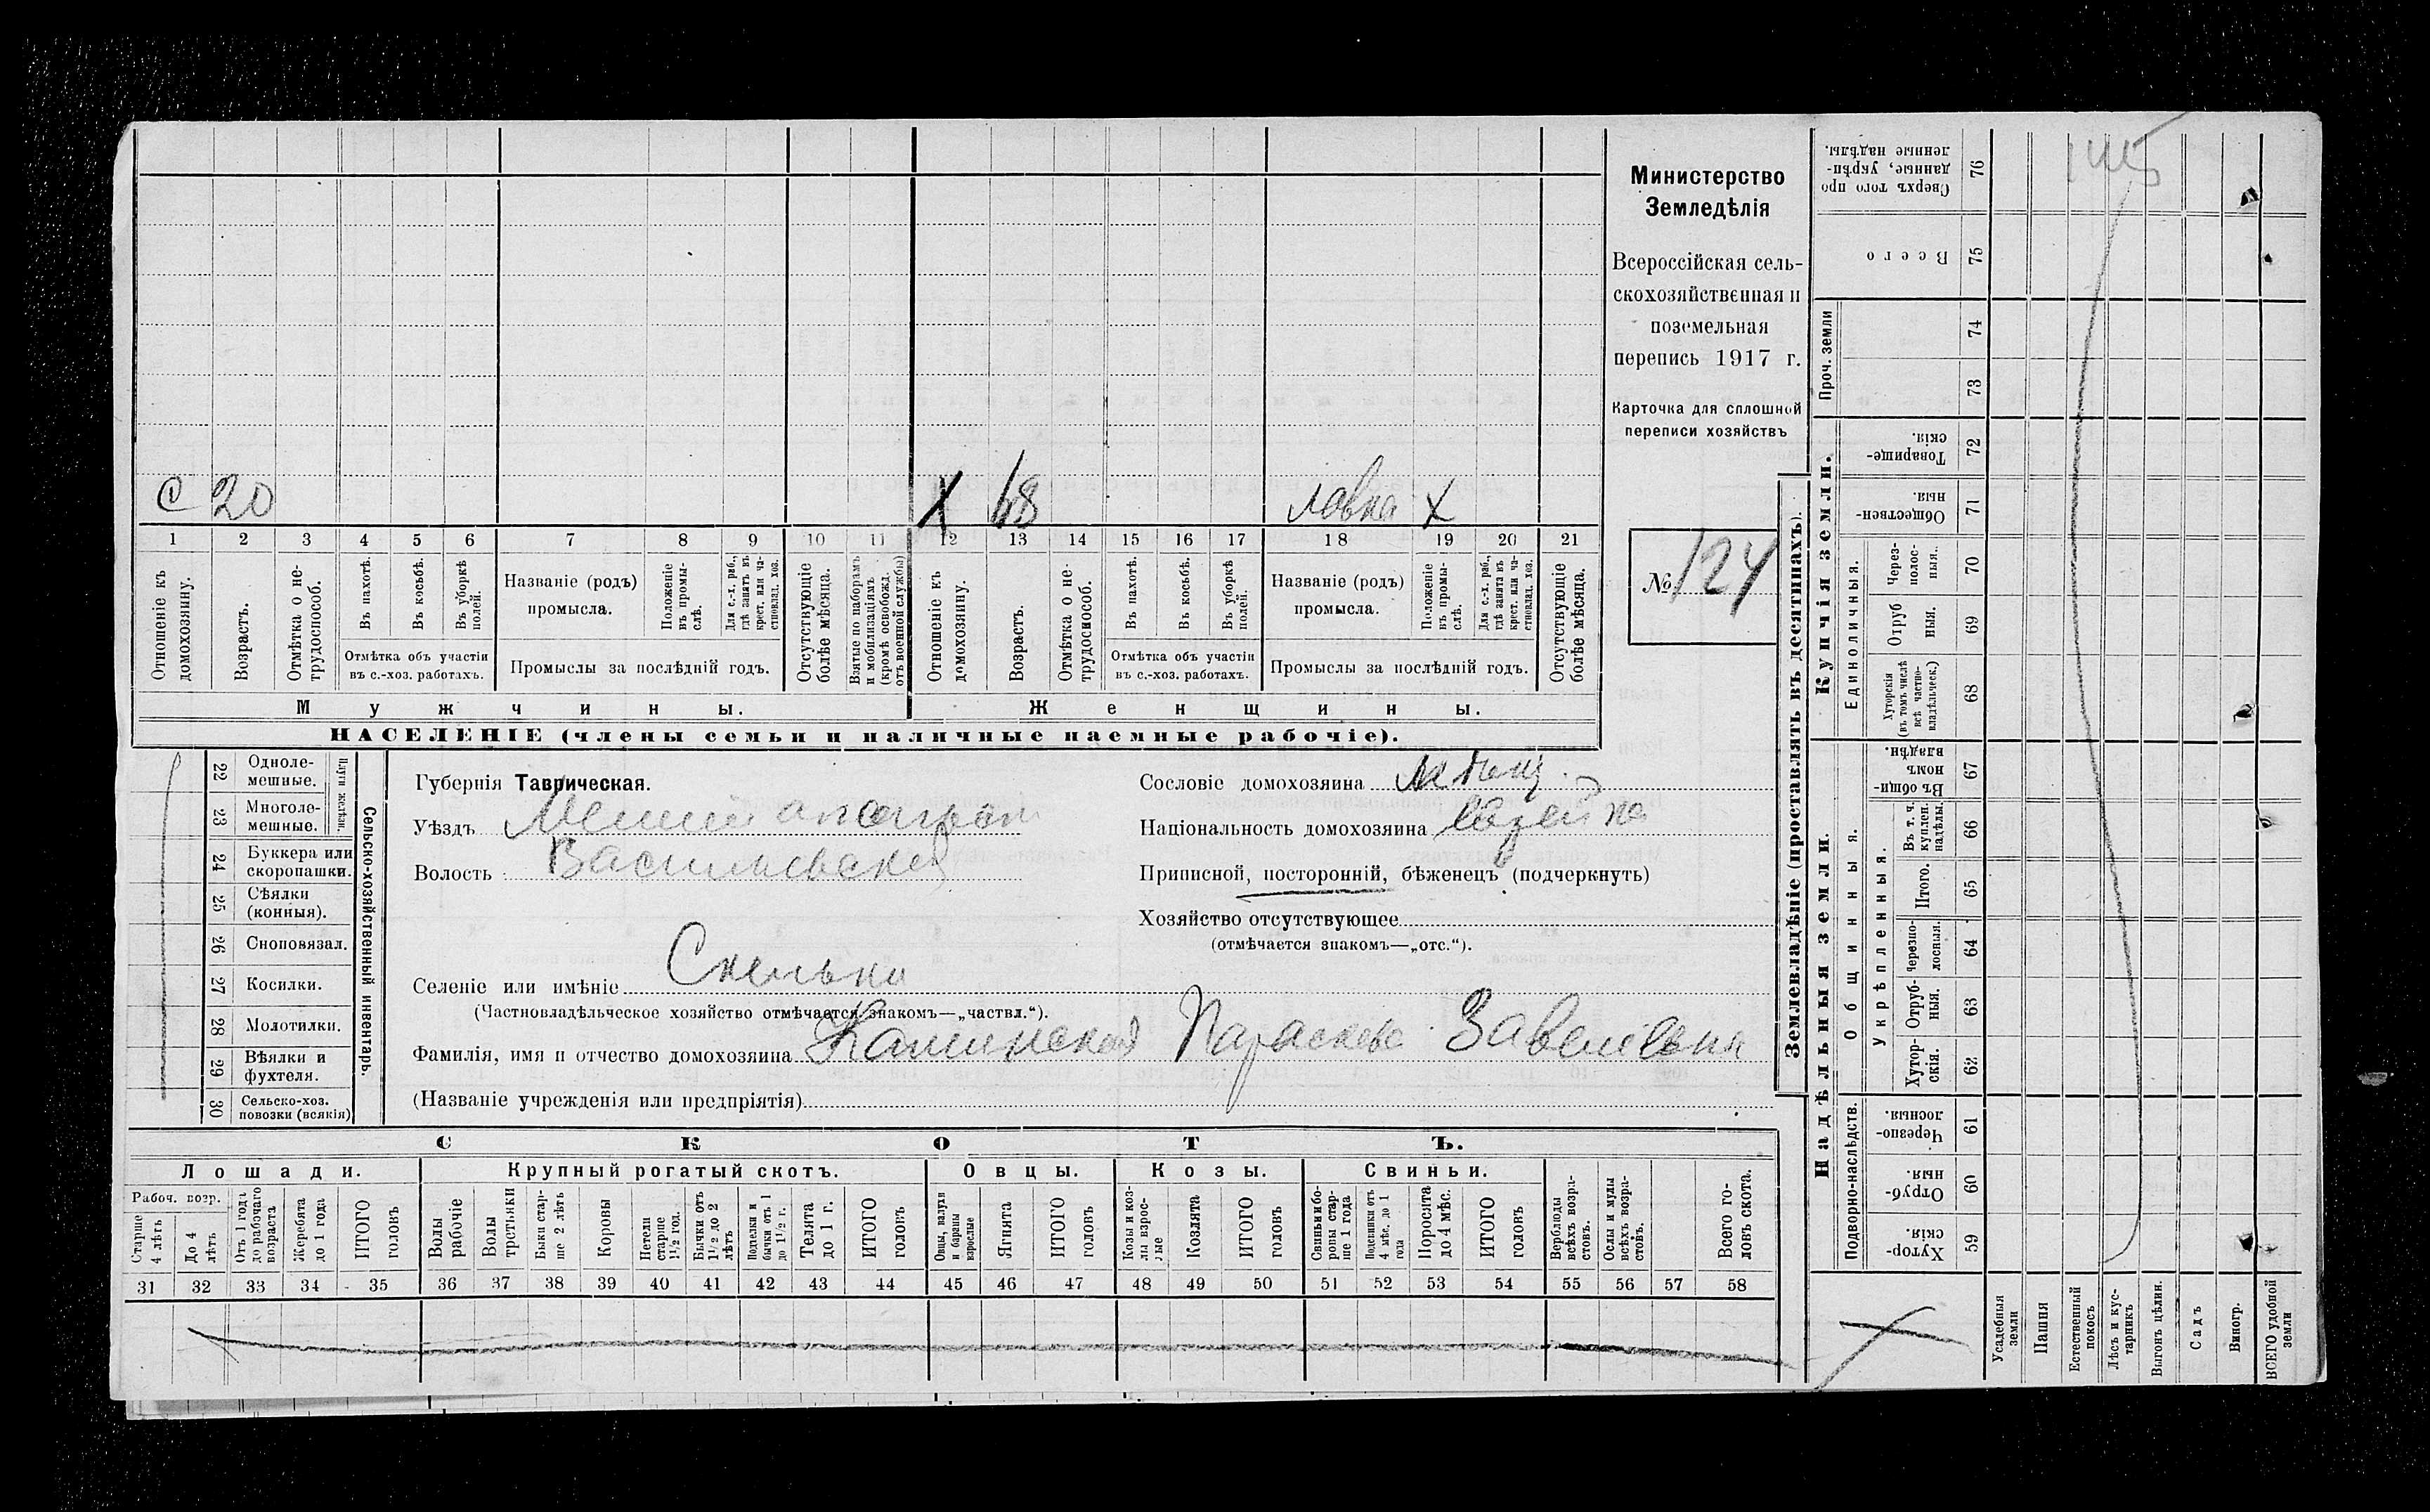 С 20
Х 48 лавка Х
1 2 3 4 5 6 7 8 9 10 11 12 13 14 15 16 17 18 19 20 21
Отношеніе къ домохозяину.
Возрастъ.
Отмѣтка о нетрудоспособ.
Въ пахотѣ.
Въ косьбѣ.
Въ уборкѣ полей.
Отмѣтка объ участіи
въ с.-хоз. работахъ.
Названіе (родъ)
промысла.
Положеніе въ промыслѣ.
Для с.-х. раб., гдѣ занятъ въ крест. или частновлад. хоз.
Промыслы за послѣдній годъ.
Отсутствующіе болѣе мѣсяца.
Взятые по наборамъ и мобилизаціямъ (кромѣ освобожд. отъ военной службы)
Отношеніе къ домохозяину.
Возрастъ.
Отмѣтка о нетрудоспособ.
Въ пахотѣ.
Въ косьбѣ.
Въ уборкѣ полей.
Отмѣтка объ участіи
въ с.-хоз. работахъ.
Названіе (родъ)
промысла.
Положеніе въ промыслѣ.
Для с.-х. раб., гдѣ занята въ крест. или частновлад. хоз.
Промыслы за послѣдній годъ.
Отсутствующіе болѣе мѣсяца.
Мужчины. Женщины.
НАСЕЛЕНІЕ (члены семьи и наличные наемные рабочіе).
Министерство
Земледѣлія
Всероссійская сель-
скохозяйственная и
поземельная
перепись 1917 г.
Карточка для сплошной
переписи хозяйствъ
№ 124
22 Одноле-
мешные.
23 Многоле-
мешные.
Плуги желѣзн.
24 Буккера или
скоропашки.
25 Сѣялки
(конныя).
26 Сноповязал.
27 Косилки.
28 Молотилки.
29 Вѣялки и
фухтеля.
30 Сельско-хоз.
повозки (всякія)
Сельско-хозяйственный инвентарь.
Губернія Таврическая.
Уѣздъ
Волость Васильевская
Селеніе или имѣніе Скельки
(Частновладѣльческое хозяйство отмѣчается знакомъ—„частвл.“).
Фамилія, имя и отчество домохозяина Параскева
(Названіе учрежденія или предпріятія)
Сословіе домохозяина
Національность домохозяина
Приписной, посторонній, бѣженецъ (подчеркнуть)
Хозяйство отсутствующее
(отмѣчается знакомъ—„отс.“).
СКОТЪ.
Лошади. Крупный рогатый скотъ. Овцы. Козы. Свиньи.
Рабоч. возр.
Старше 4 лѣтъ
До 4 лѣтъ
Отъ 1 года до рабочаго возраста
Жеребята до 1 года
ИТОГО головъ
Волы рабочіе
Волы третьяки
Быки старше 2 лѣтъ
Коровы
Нетели старше 1½ год.
Бычки отъ 1½ до 2 лѣтъ
Подтелки и бычки отъ 1 до 1½ г.
Телята до 1 г.
ИТОГО головъ
Овцы, валухи и бараны взрослые
Ягнята
ИТОГО головъ
Козы и козлы взрослые
Козлята
ИТОГО головъ
Свиньи и боровы старше 1 года
Подсвинки отъ 4 мѣс. до 1 года
Поросята до 4 мѣс.
ИТОГО головъ
Верблюды всѣхъ возрастовъ.
Ослы и мулы всѣхъ возрастовъ.
Всего головъ скота.
31 32 33 34 35 36 37 38 39 40 41 42 43 44 45 46 47 48 49 50 51 52 53 54 55 56 57 58
Землевладѣніе (проставлять въ десятинахъ).
Надѣльныя земли.
Купчія земли.
Проч. земли
Подворно-наслѣдств.
Общинныя.
Укрѣпленныя.
Единоличныя.
Сверхъ того проданные, укрѣпленные надѣлы. 76
Всего 75
74
73
Товарищескія. 72
Общественныя. 71
Черезполосныя. 70
Отрубныя. 69
Хуторскія (въ томъ числѣ всѣ частновладѣльческ.) 68
Въ общинномъ владѣн. 67
Въ т. ч. куплен. надѣлы. 66
Итого. 65
Черезполосныя. 64
Отрубныя. 63
Хуторскія. 62
Черезполосныя. 61
Отрубныя. 60
Хуторскія. 59
Усадебныя земли
Пашня
Естественный покосъ
Лѣсъ и кустарникъ
Выгонъ цѣлин.
Садъ
Виногр.
ВСЕГО удобной земли